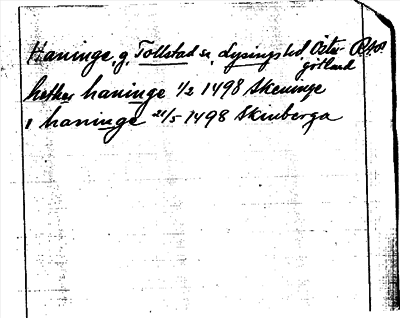 Haninge, g, Tollstad sn, Lysings hd, Öster-
götland
hethes haninge 1/2 1498 Skeninge
i haninge 21/5 1498 Skinberga